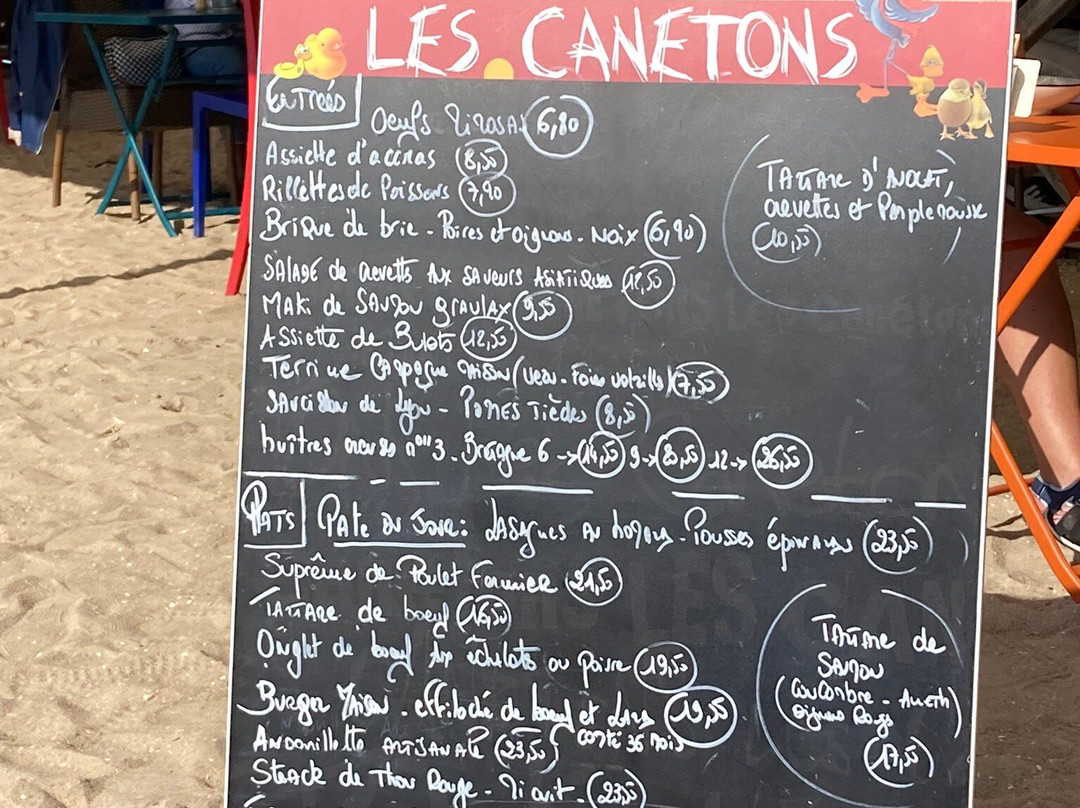 LES CANETONS
Entrées
Oeufs Mimosas 6,80
Assiette d'accras 8,50
Rillettes de Poissons 7,90
Brique de brie - Poires et oignons - Noix 6,90
Salade de crevettes aux saveurs Asiatiques 12,50
Maki de Saumon gravlax 9,50
Assiette de Bulots 12,50
Terrine Campagne Maison (veau - Foies volailles) 7,50
Saucisson de Lyon - Pommes Tièdes 8,50
huîtres creuses n°3 - Bretagne 6 -> 14,50 9-> 20,50 12-> 26,50
Tartare d'Avocat,
crevettes et Pamplemousse
10,50
Plats
Pate du Jour: Lasagnes au - Pousses épinards 23,50
Suprême de Poulet Fermier 21,50
Tartare de boeuf 18,50
Onglet de boeuf aux échalotes ou Poivre 19,50
Burger Maison - effiloché de boeuf et Lard 19,50
comté 36 mois
Andouillette artisanale 23,50
Steack de Thon Rouge - Mi cuit - 23,50
Tartare de
Saumon
(Concombre - Aneth
oignons Rouges)
17,50